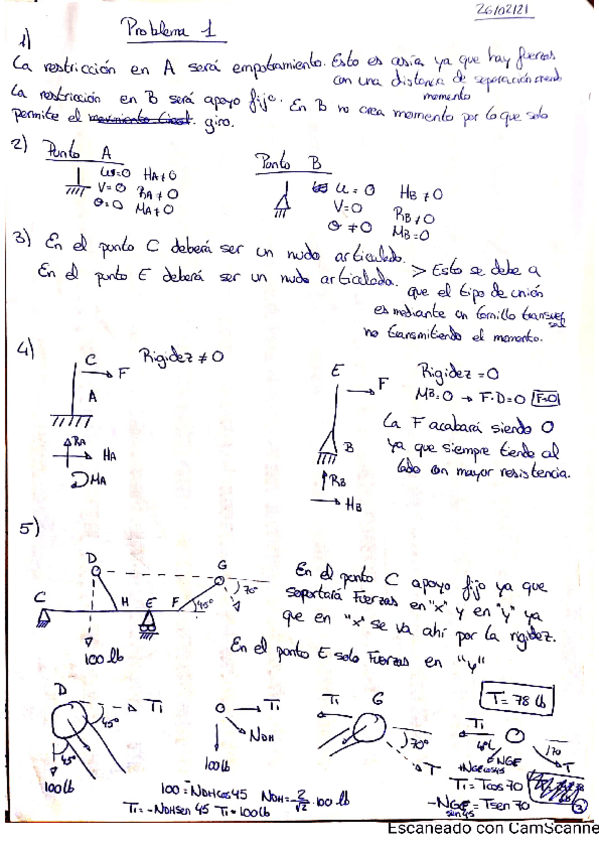 26/02/21
Problema 1
1)
La restricción en A será empotramiento. Esto es así ya que hay fuerzas
con una distancia de separación creando
momento
La restricción en B será apoyo fijo. En B no crea momento por lo que solo
permite el giro.
2) Punto A
u=0 HA≠0
V=0 RA≠0
θ=0 MA≠0
Punto B
u=0 HB≠0
V=0 RB≠0
θ≠0 MB=0
3) En el punto C deberá ser un nudo articulado.
En el punto E deberá ser un nudo articulado. > Esto se debe a
que el tipo de unión
es mediante un tornillo transversal
no transmitiendo el momento.
4) C F Rigidez ≠0
A
RA
HA
MA
E F Rigidez =0
MB=0 → F·D=0 F=0
La F acabará siendo 0
ya que siempre tiende al
lado con mayor resistencia.
B
RB
HB
5)
D G
C H E F 45° 70°
100 lb
En el punto C apoyo fijo ya que
soportará Fuerzas en "x" y en "y" ya
que en "x" se va ahí por la rigidez.
En el punto E solo Fuerzas en "y"
D T1 45° 45° 100lb
T1 NDH 100lb
T1 G 70° T
T= 78 lb
T1 NGE 70 T
+NGEcos45
T1 = Tcos70
-NGE sen45 = Tsen70
100 = NDHcos45 NDH=-2/√2·100 lb
T1=-NDHsen45 T1=100lb
3
Escaneado con CamScanne